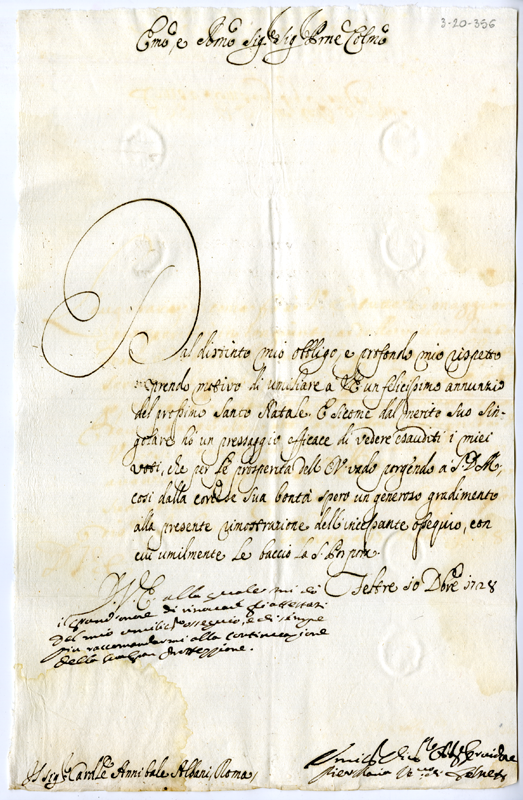 3-20-356
Emo, e Rmo Sig.r Sig.r Prne Colmo
Dal distinto mio obbligo, e profondo mio rispetto
prendo motivo di umiliare a VE un felicissimo annunzio
del prossimo Santo Natale. E siccome dal merito Suo Sin-
golare hò un presaggio efficace di vedere esauditi i miei
voti, che per le prosperità dell' EV vado porgendo a S.D.M,
così dalla cordle Sua bontà spero un generoso gradimento
alla presente rimostrazione dell' incessante ossequio, con
cui umilmente le baccio la S. Porpora.
Feltre 10 Dbre 1728
VE alla quale mi dò
il grand' onore di rinovar gli attestati
del mio umilis.mo ossequio, e di sempre
più raccomandarmi alla continuazione
della protezzione.
Sig.r Cardle Annibale Albani Roma
Umilis.mo Servidore
Pier Maria